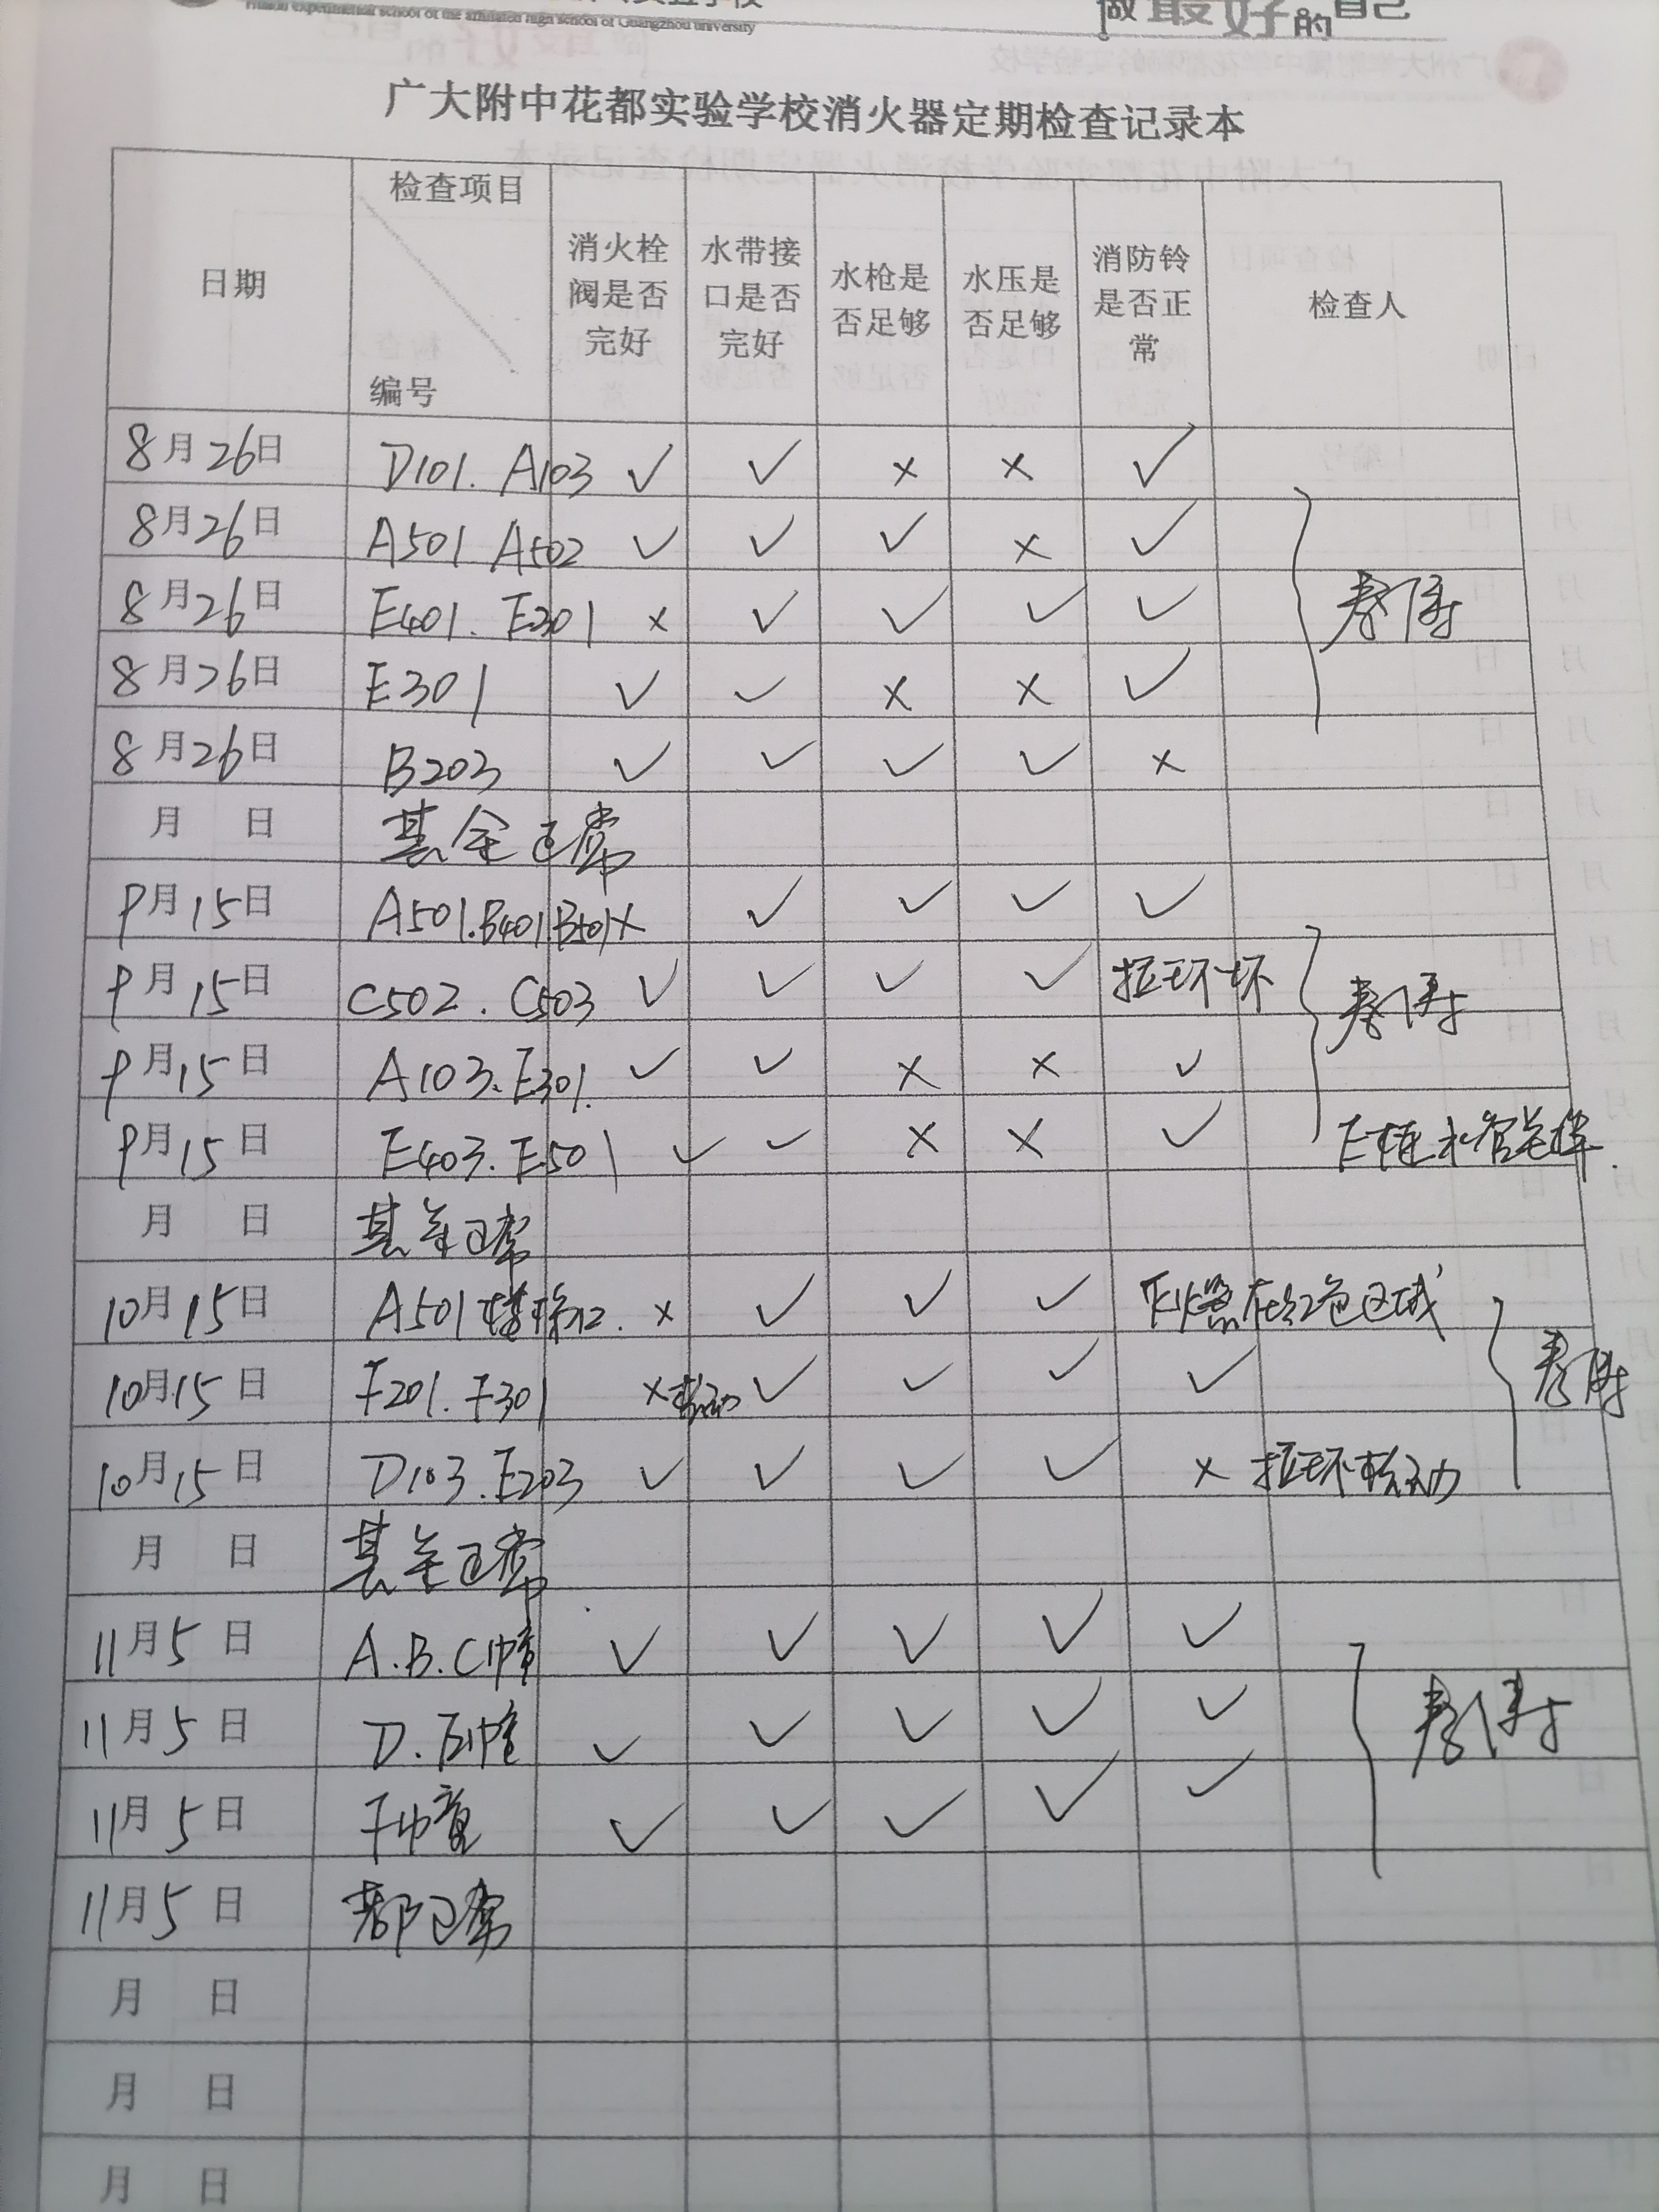 实验学校
experimental school of the affiliated high school of Guangzhou university
做最好的自己
广大附中花都实验学校消火器定期检查记录本
日期 检查项目 编号 消火栓阀是否完好 水带接口是否完好 水枪是否足够 水压是否足够 消防铃是否正常 检查人
8月26日 D101. A103 ✓ ✓ × × ✓
8月26日 A501. A502 ✓ ✓ ✓ × ✓
8月26日 E401. E301 × ✓ ✓ ✓ ✓
8月26日 E301 ✓ ✓ × × ✓
8月26日 B203 ✓ ✓ ✓ ✓ ×
月 日 其余正常
9月15日 A501.B401.B501 × ✓ ✓ ✓ ✓
9月15日 C502. C503 ✓ ✓ ✓ ✓ 拉环坏
9月15日 A103.E301. ✓ ✓ × × ✓
9月15日 E403.E501 ✓ ✓ × × ✓ E栋水管
月 日 其余正常
10月15日 A501 × ✓ ✓ ✓ 在红色区域
10月15日 F201. F301 ×松动 ✓ ✓ ✓ ✓
10月15日 D103.E203 ✓ ✓ ✓ ✓ × 拉环松动
月 日 其余正常
11月5日 A.B.C幢 ✓ ✓ ✓ ✓ ✓
11月5日 D.E幢 ✓ ✓ ✓ ✓ ✓
11月5日 F幢 ✓ ✓ ✓ ✓ ✓
11月5日 都正常
月 日
月 日
月 日